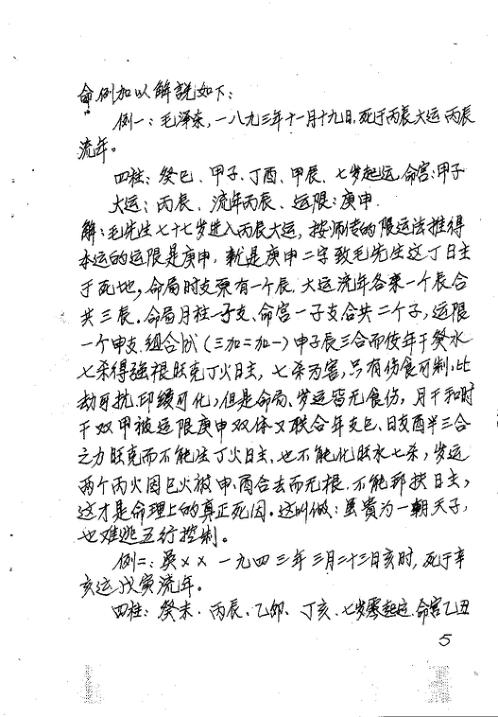 命例加以解說如下：
例一：毛泽东，一八九三年十一月十九日，死于丙辰大运丙辰
流年。
四柱：癸巳、甲子、丁酉、甲辰、七岁起运，命宫：甲子
大运：丙辰、流年丙辰、运限：庚申
解：毛先生七十七岁进入丙辰大运，按师传的限运法推得
本运的运限是庚申，就是庚申二字致毛先生这丁日主
于死地。命局时支原有一个辰，大运流年各来一个辰合
共三辰。命局月柱一子支、命宫一子支合共二个子，运限
一个申支，组合成（三加二加一）申子辰三合而使年干癸水
七杀得强根旺克丁火日主，七杀为害，只有伤食可制，比
劫可抗，印绶可化，但是命局、岁运皆无食伤，月干和时
干双甲被运限庚申双体又联合年支巳、日支酉半三合
之力旺克而不能生丁火日主，也不能化旺水七杀，岁运
两个丙火因巳火被申、酉合去而无根，不能帮扶日主，
这才是命理上的真正死因。这叫做：虽贵为一朝天子，
也难逃五行控制。
例二：吴×× 一九四三年三月二十三日亥时，死于辛
亥运戊寅流年。
四柱：癸未、丙辰、乙卯、丁亥、七岁零起运，命宫乙丑
5